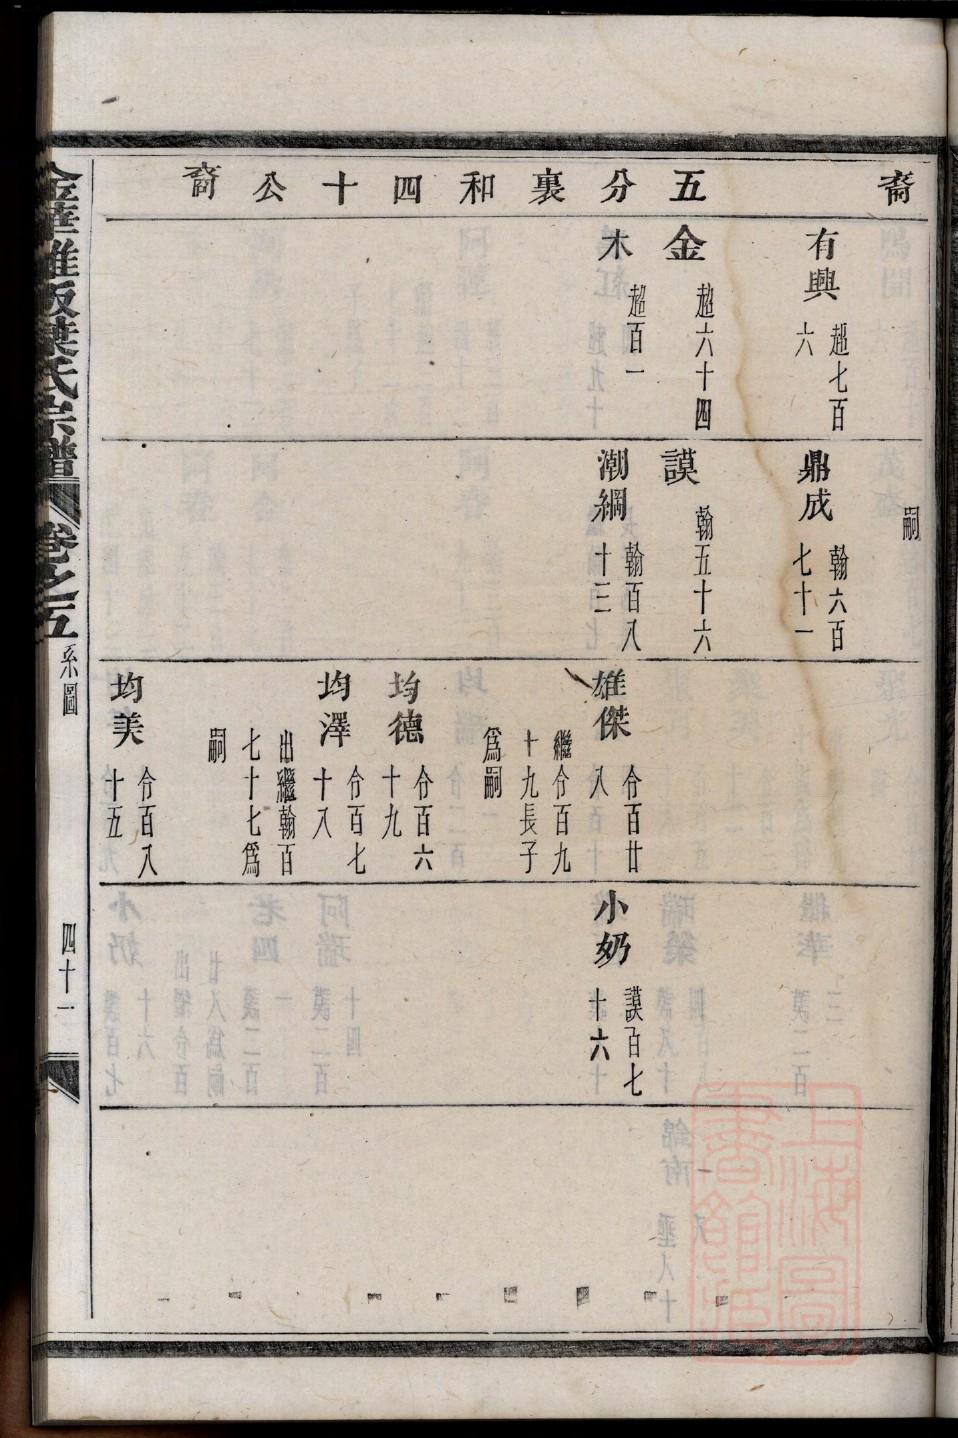 裔
五分裏和四十公裔
有興 超七百六
金 超六十四
木 超百一
嗣
鼎成 翰六百七十一
謨 翰五十六
潮綱 翰百八十三
雄傑 仒百廿八
繼仒百九十九長子爲嗣
均德 仒百六十九
均澤 仒百七十八
出繼翰百七十七爲嗣
均美 仒百八十五
小奶 謨百七十六
金華雅畈葉氏宗譜 卷之五 系圖 四十一
上海圖書館藏